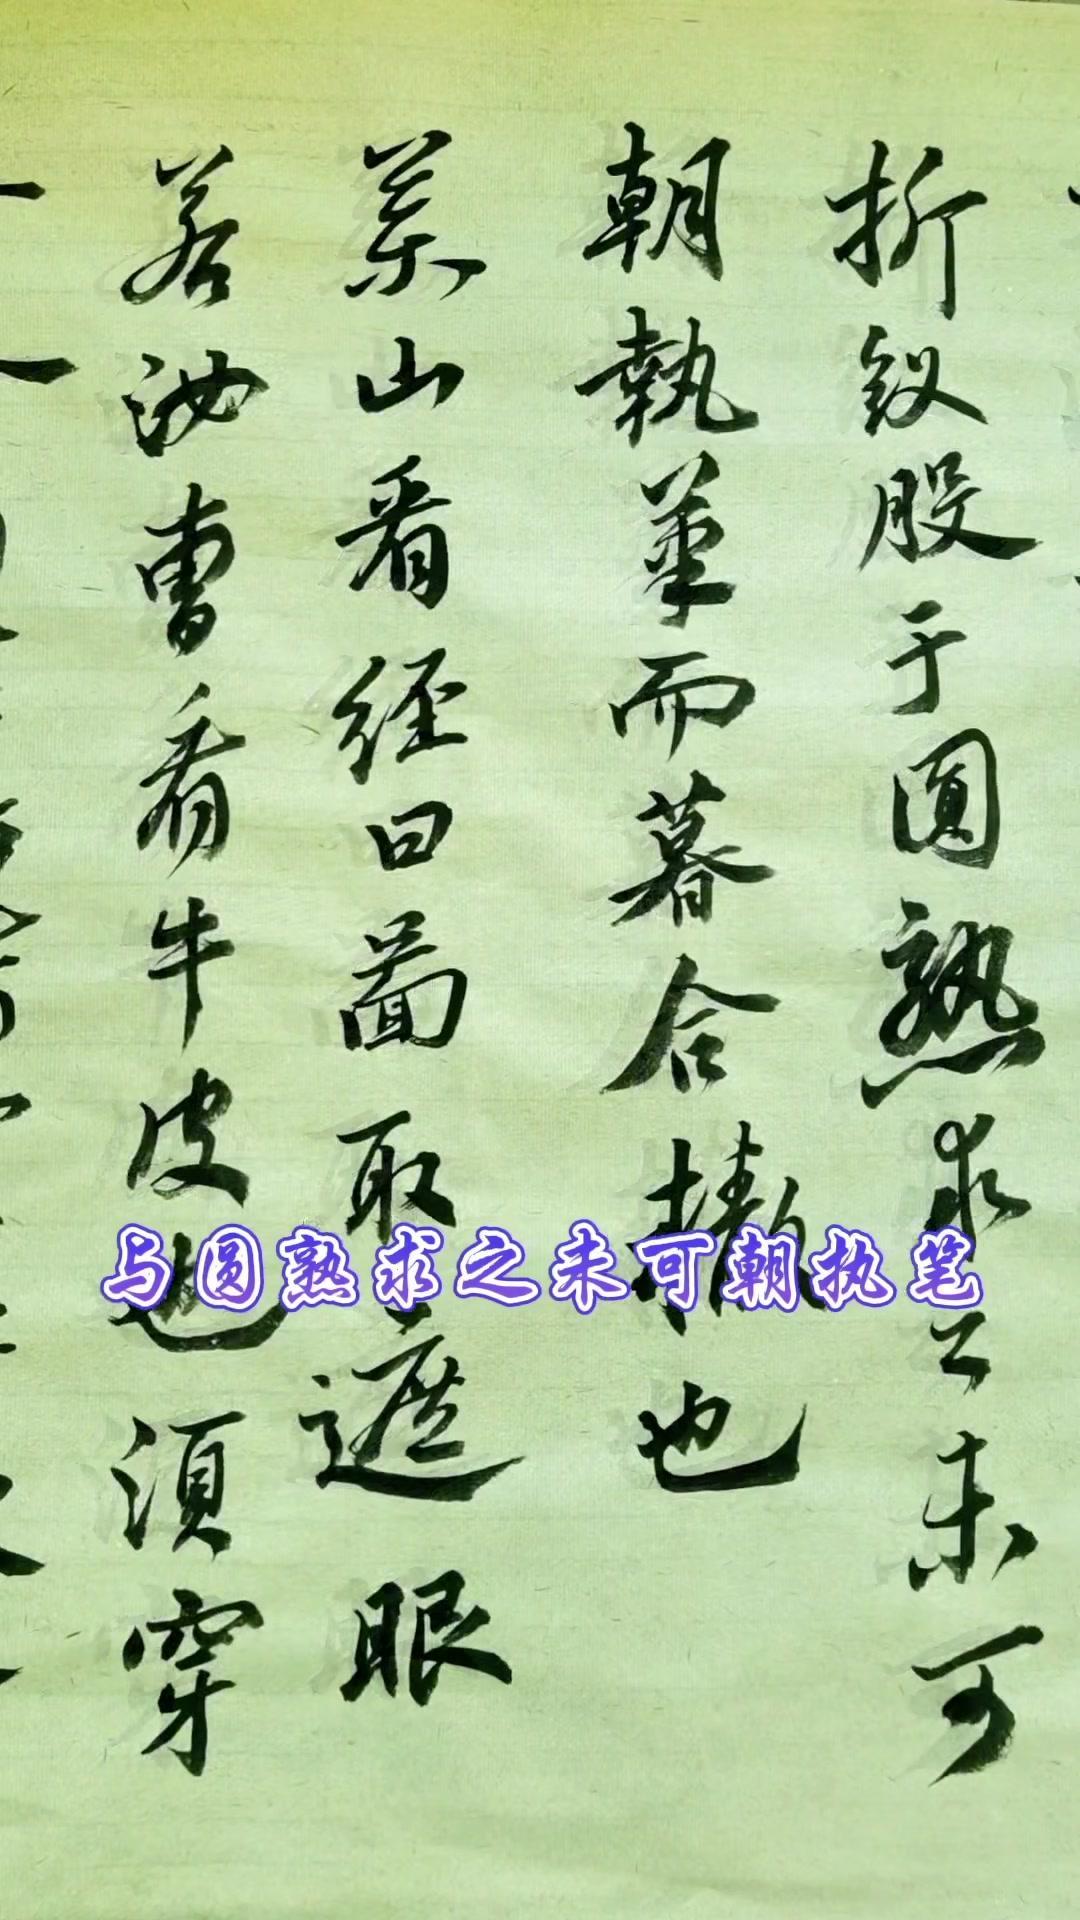 折釵股于圓熟求之未可
朝執筆而暮合轍也
藥山看經曰圖取遮眼
若汝曹看牛皮也須穿
与圆熟求之未可朝执笔